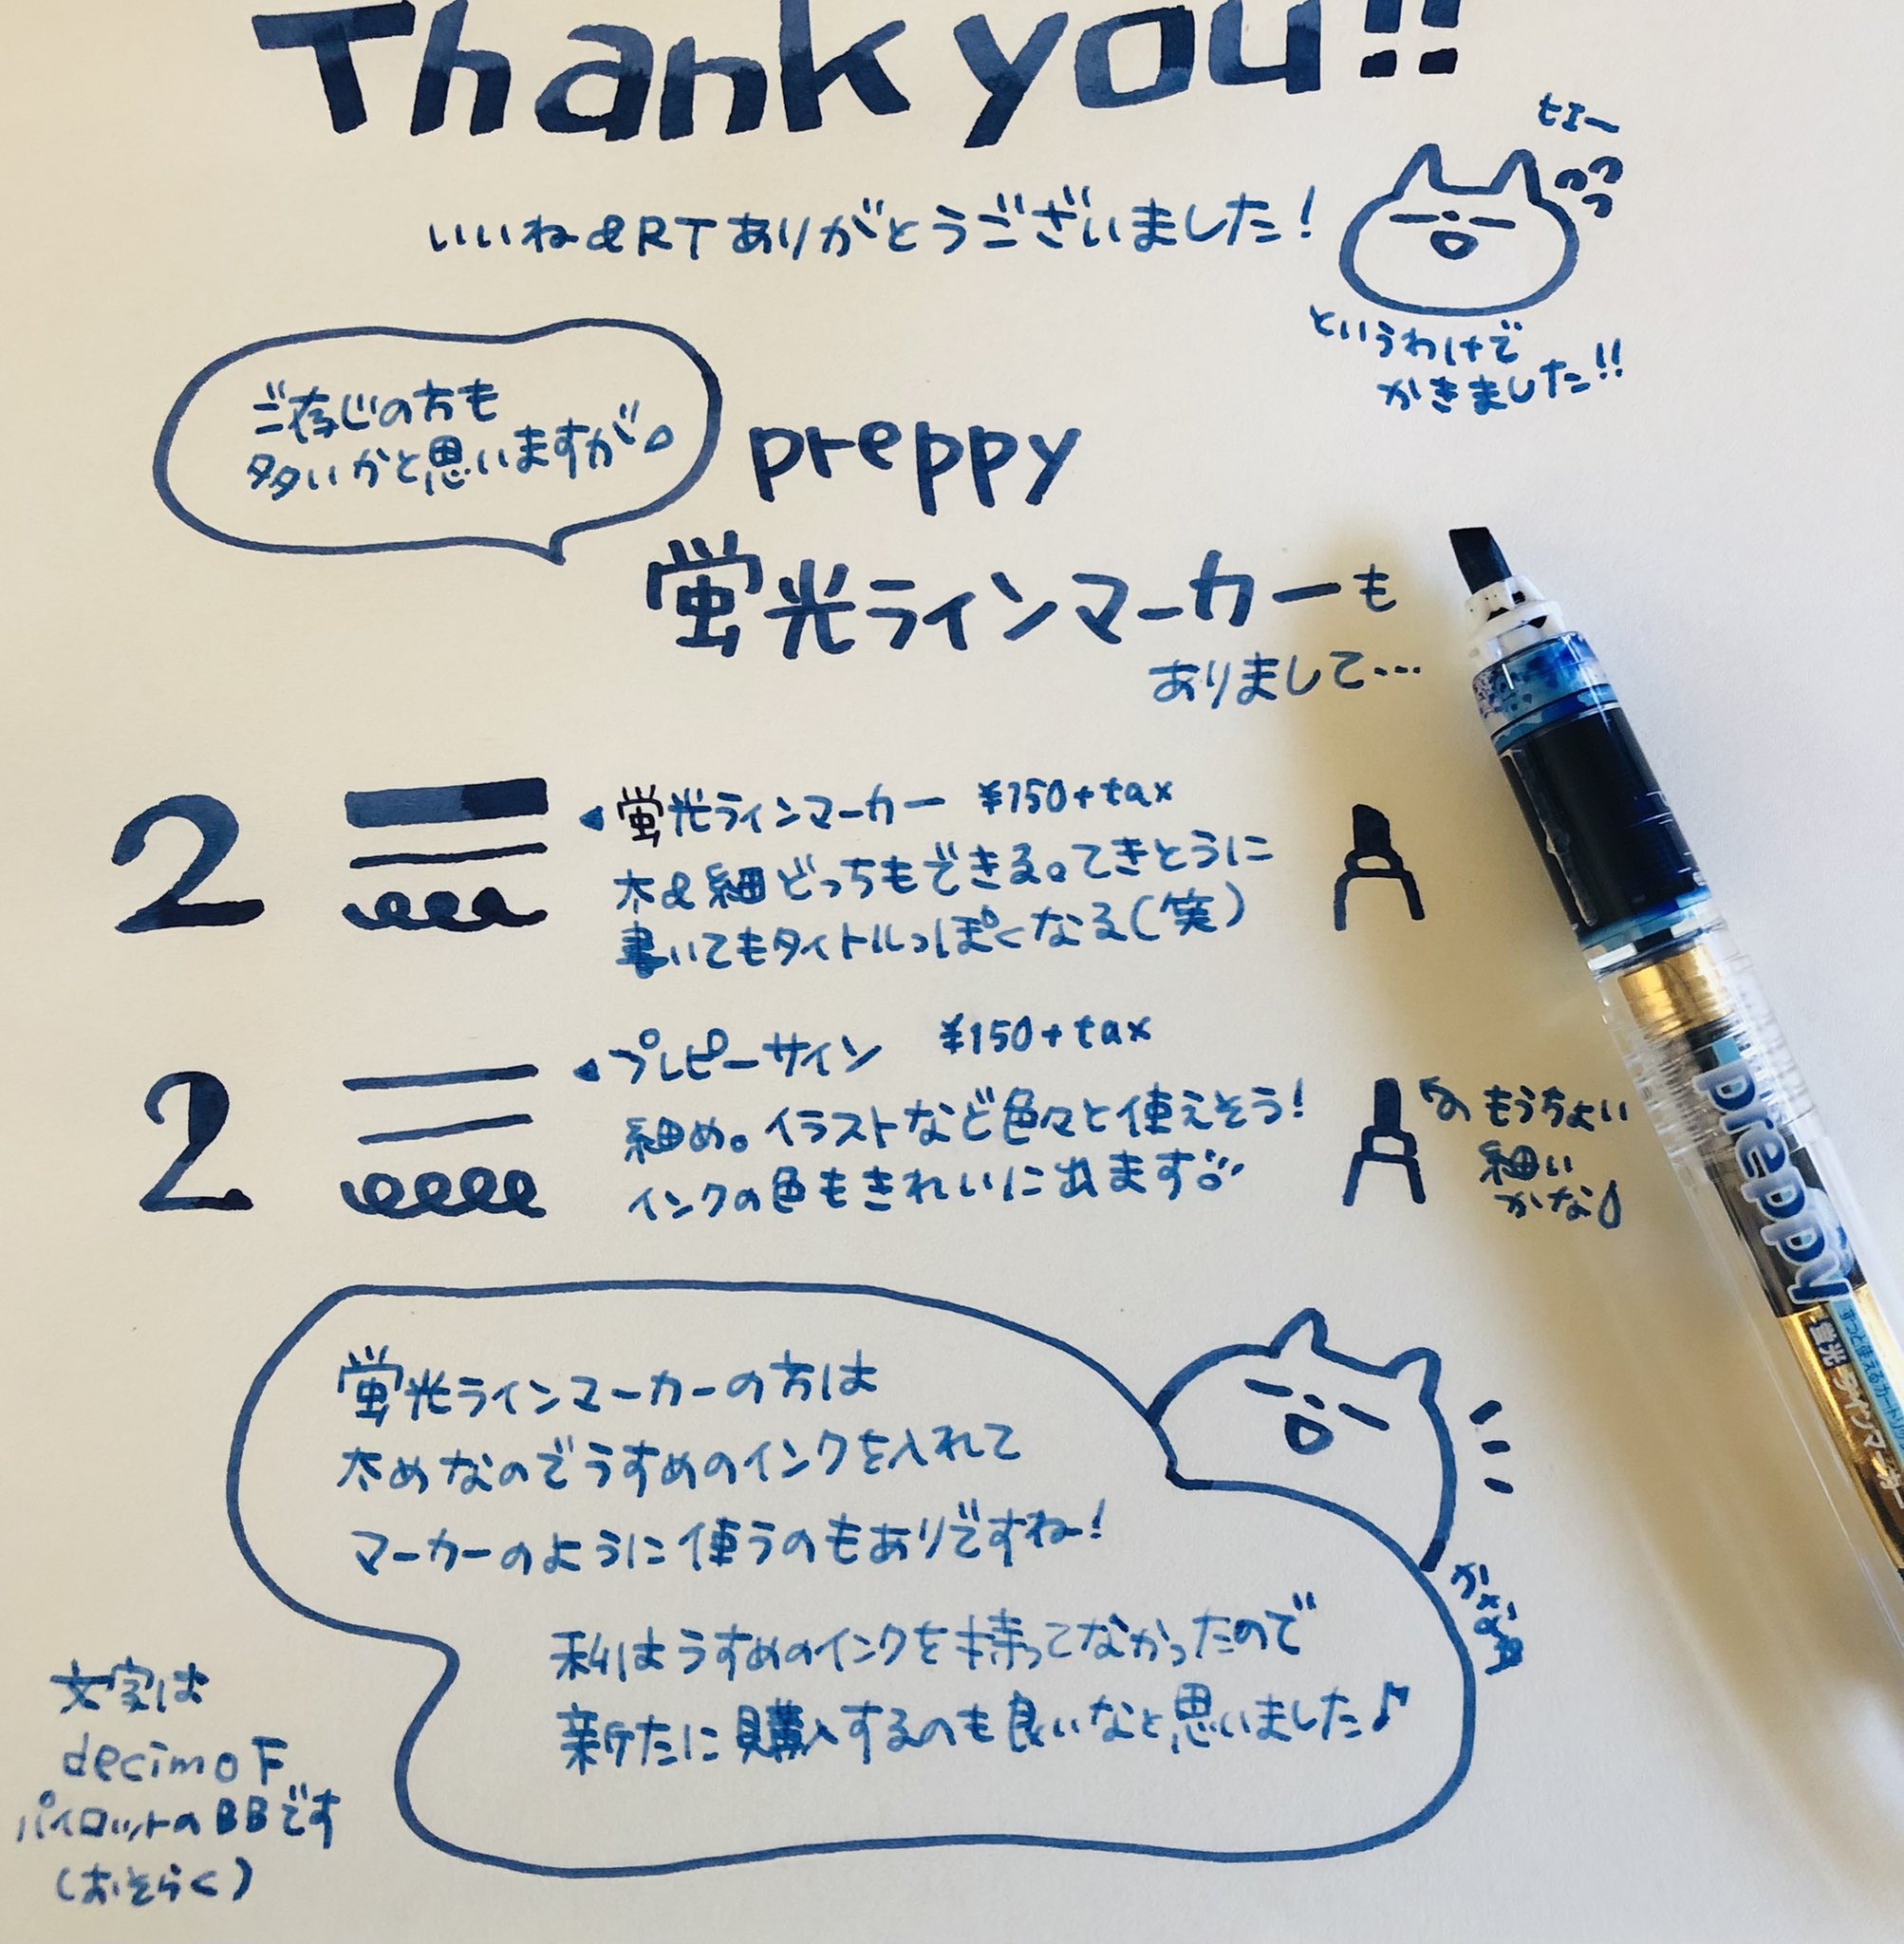 Thank you!!
ヒエ〜
いいね&RTありがとうございました!
というわけで
かきました!!
ご存じの方も
多いかと思いますが
preppy
蛍光ラインマーカーも
ありまして…
2
蛍光ラインマーカー ¥150+tax
太&細どっちもできる。てきとうに
書いてもタイトルっぽくなる(笑)
2
プレピーサイン ¥150+tax
細め。イラストなど色々と使えそう!
インクの色もきれいに出ます
もうちょい
細い
かな
蛍光ラインマーカーの方は
太めなのでうすめのインクを入れて
マーカーのように使うのもありですね!
私はうすめのインクを持ってなかったので
新たに購入するのも良いなと思いました♪
文字は
decimo F
パイロットのBBです
(おそらく)
preppy
ずっと使えるカートリッジ
蛍光 ラインマーカー